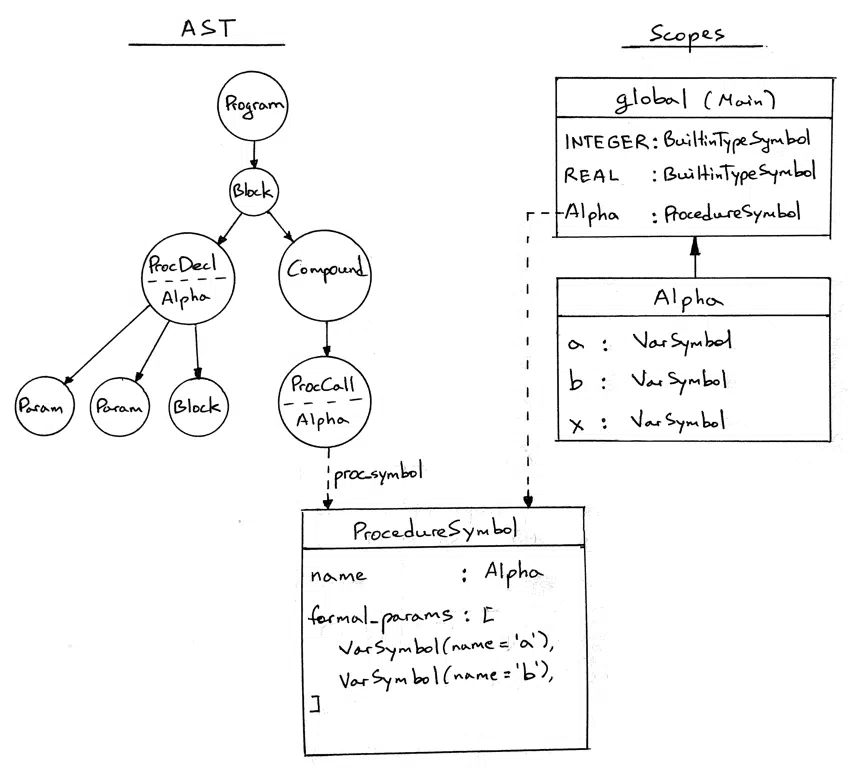 AST
Program
Block
ProcDecl
Alpha
Compound
Param
Param
Block
ProcCall
Alpha
proc_symbol
Scopes
global (Main)
INTEGER : BuiltinTypeSymbol
REAL : BuiltinTypeSymbol
Alpha : ProcedureSymbol
Alpha
a : VarSymbol
b : VarSymbol
x : VarSymbol
ProcedureSymbol
name : Alpha
formal_params : [
VarSymbol(name = 'a'),
VarSymbol(name = 'b'),
]